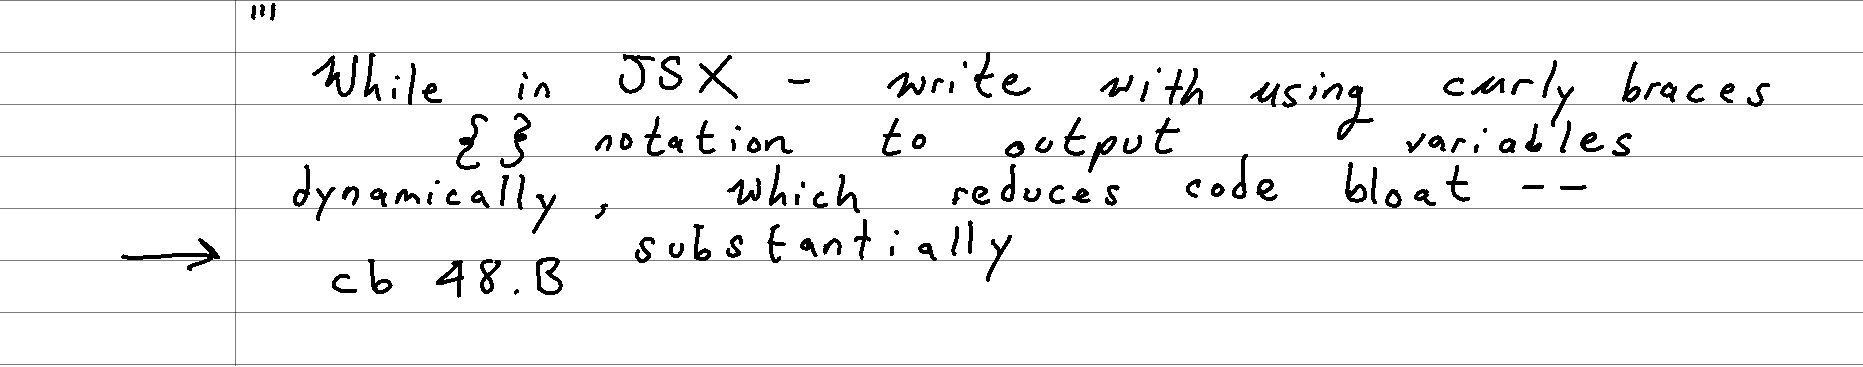 "'
While in JSX - write with using curly braces
{ } notation to output , variables
dynamically, which reduces code bloat --
substantially
→ cb 48.B